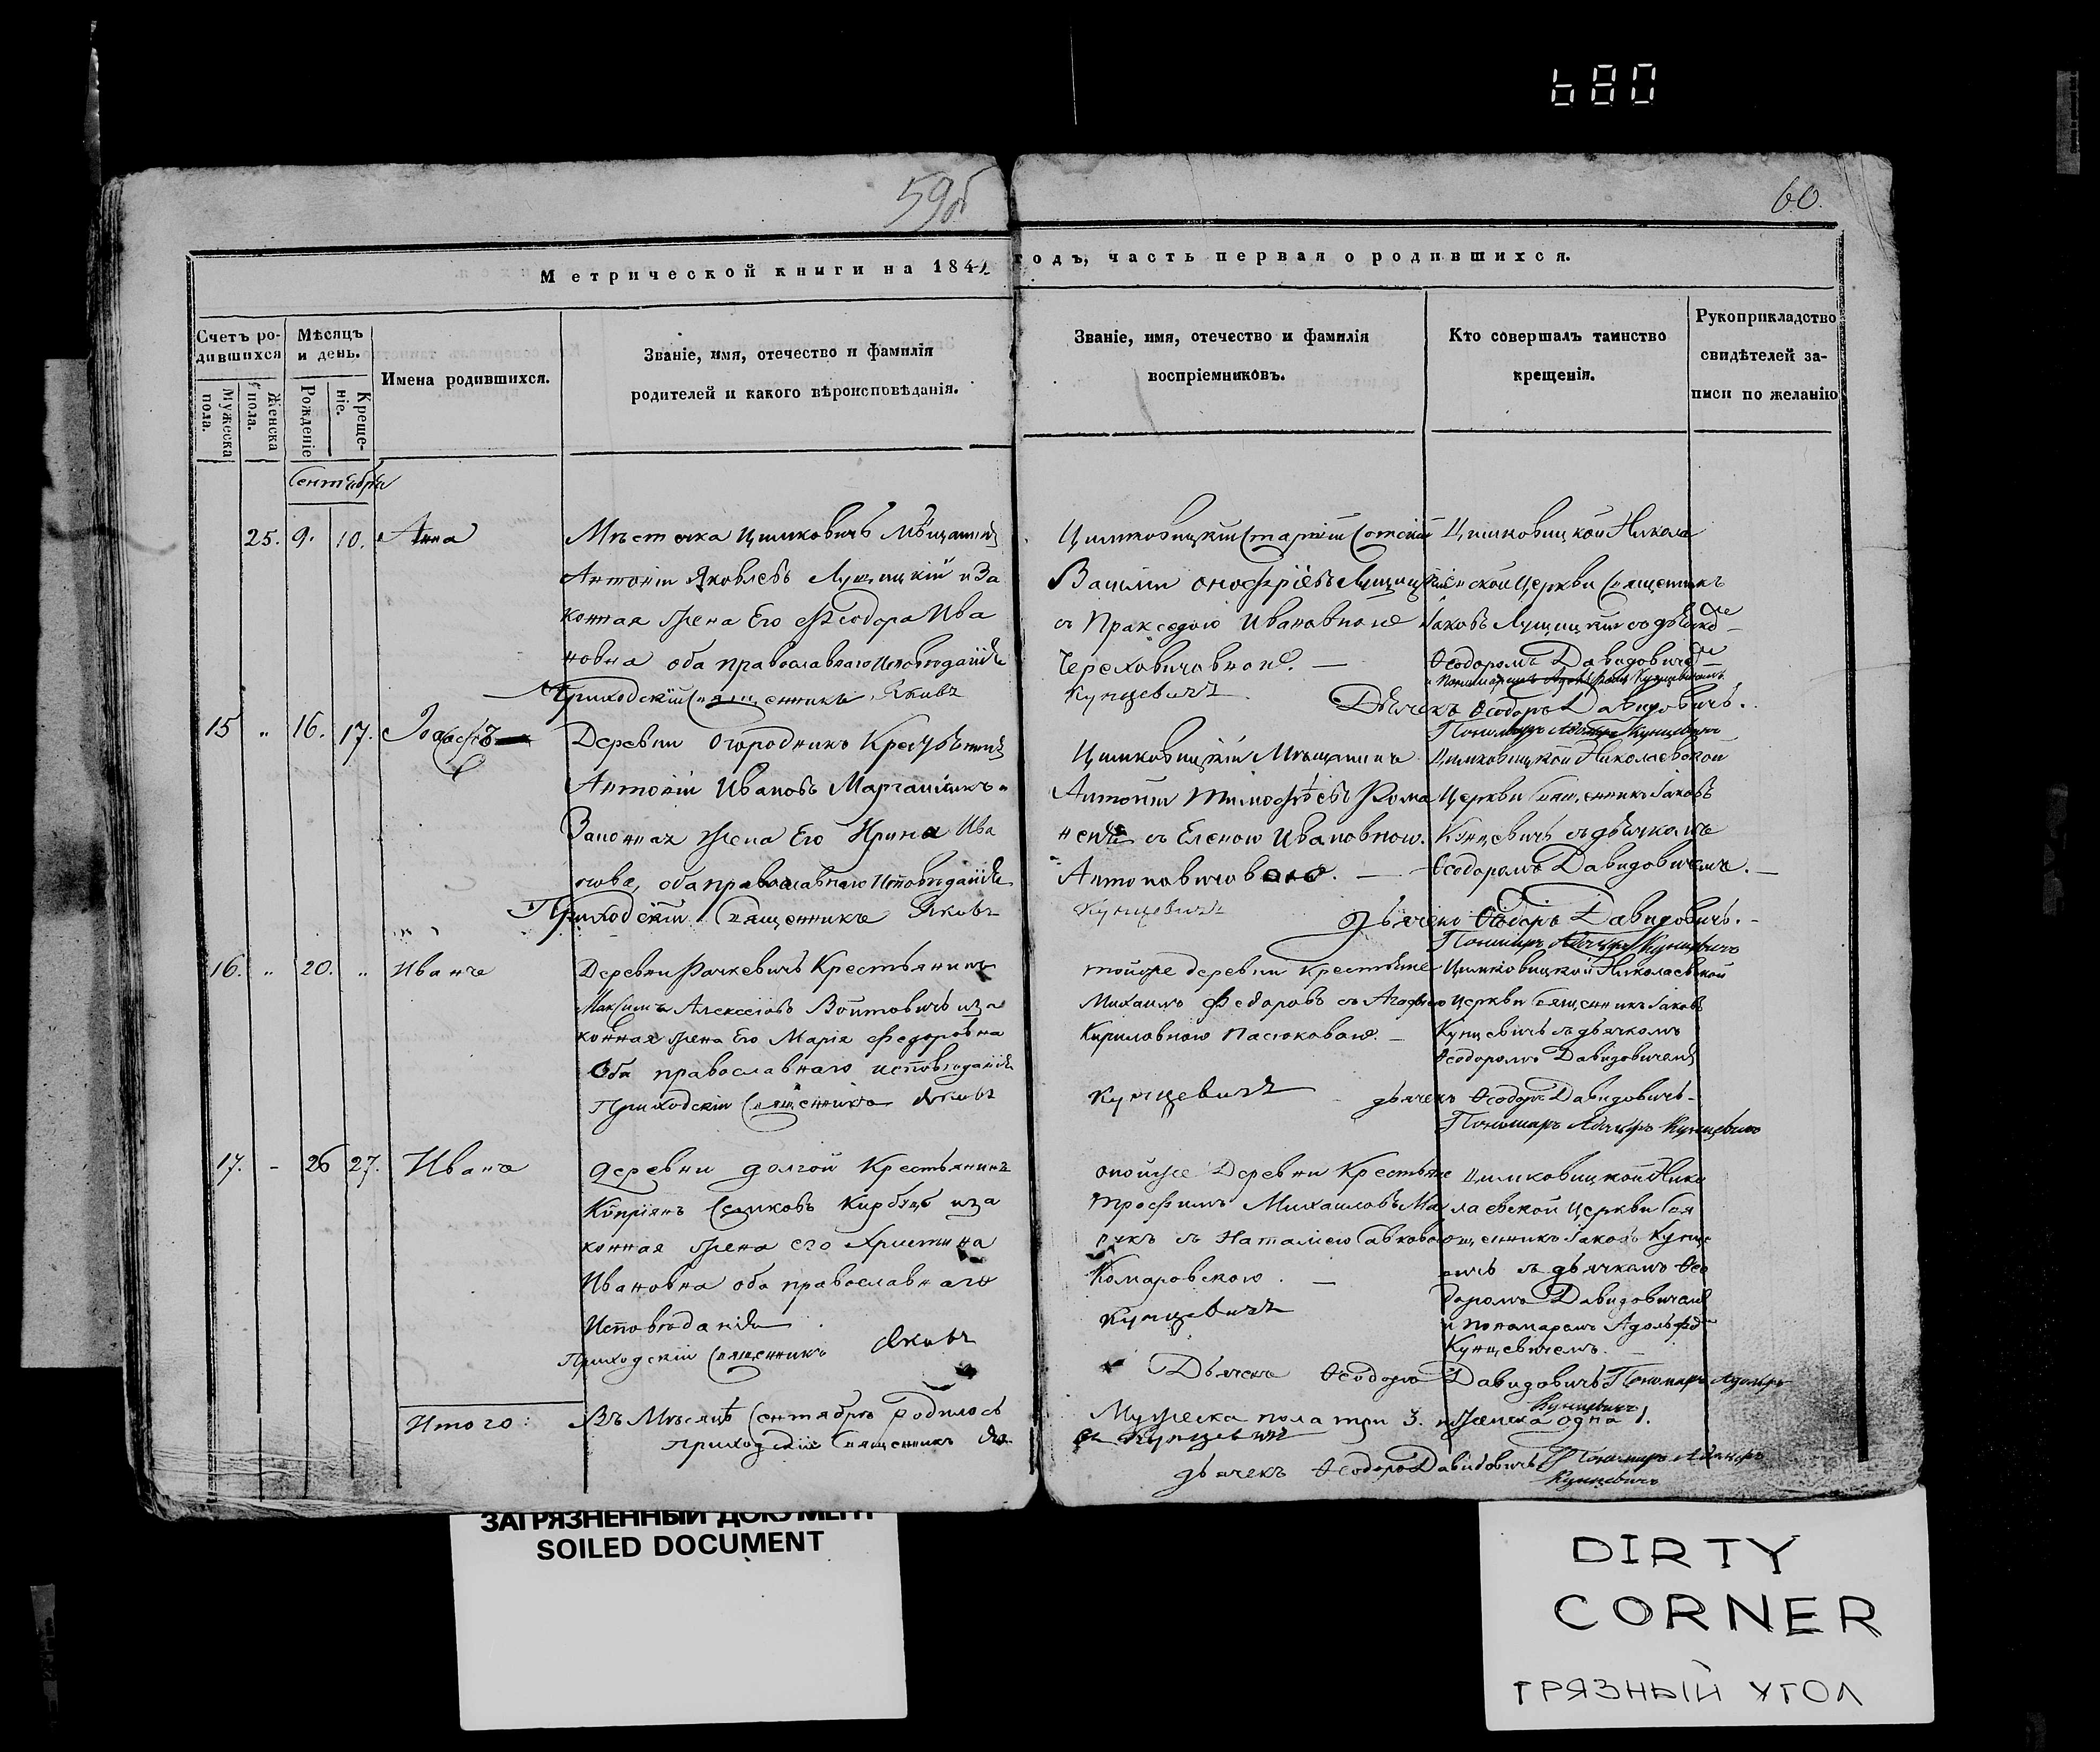 680
59б
60.
Метрической книги на 1841 годъ, часть первая о родившихся.
Счетъ ро-
дившихся
Мужеска
пола.
Женска
пола.
Мѣсяцъ
и день.
Рожденіе
Креще-
ніе.
Имена родившихся.
Званіе, имя, отечество и фамилія
родителей и какого вѣроисповѣданія.
Званіе, имя, отечество и фамилія
воспріемниковъ.
Кто совершалъ таинство
крещенія.
Рукоприкладство
свидѣтелей за-
писи по желанію
Сентября
25. 9. 10. Анна
Мѣстечка Цимковичь Мѣщанинъ
Антоній Яковлевъ Лущицкій и За
конная жена Его Феодора Ива
новна оба православнаго Исповѣданія
Приходскій Священникъ Яковъ
Цимковицкій Старшій Сотскій
Василій Онофріевъ Лущицкій
съ Пракседою Ивановною
Череховичовною. —
Кунцевичъ
Цимковицкой Никола
евской Церкви Священникъ
Іаковъ съ дьячко
Ѳеодоромъ Давидовиче
и Пономаремъ Адольфомъ Кунцевичемъ
Дьячекъ Ѳеодоръ Давидовичь.
Пономарь Адольфъ Кунцевичъ
15 " 16. 17. Іосифъ
Деревни Огородникъ Крестьянинъ
Антоній Ивановъ и
Законная жена Его Ирина Ива
нова, оба православнаго Исповѣданія
Приходскій Священникъ Яковъ
Цимковицкій Мѣщанинъ
Антоній Тимофѣевъ Рома
съ Еленою Ивановною
Антоновичовою. —
Кунцевичъ
Цимковицкой Николаевской
Церкви Священникъ Іаковъ
Кунцевичь съ дьячкомъ
Ѳеодоромъ Давидовичемъ. —
дьячекъ Ѳеодоръ Давидовичь. -
Пономарь Адольфъ Кунцевичъ
16. " 20. " Иванъ
Деревни Рачкевичь Крестьянинъ
Максимъ Алексѣевъ Войтовичь и за
конная жена Его Марія Федоровна
Оба православнаго исповѣданія
Приходскій Священникъ Яковъ
тойже деревни Крестьяне
Михаилъ Федоровъ съ Агафіею
Кириловною Пасюковою. —
Кунцевичъ
Цимковицкой Николаевской
Церкви Священникъ Іаковъ
Кунцевичь съ дьячкомъ
Ѳеодоромъ Давидовичемъ
дьячекъ Ѳеодоръ Давидовичь -
Пономарь Адольфъ Кунцевичъ
17. - 26 27. Иванъ
деревни долгой Крестьянинъ
Кипріянъ и за
конная жена его Христина
Ивановна оба православнаго
Исповѣданія
Приходскій Священникъ Яковъ
Деревни Крестьяне
Трофимъ Михаиловъ
съ Наталіею Савковою
Комаровскою. —
Кунцевичъ
Цимковицкой Нико
лаевской Церкви Свя
щенникъ Іаковъ Кунце
вичь съ дьячкомъ Ѳео
доромъ Давидовичемъ
и пономаремъ Адольфо
Кунцевичемъ.
Дьячекъ Ѳеодоръ Давидовичь Пономарь Адольфъ
Кунцевичъ
Итого: Въ Мѣсяцѣ Сентябрѣ родилось Мужеска пола три 3. и Женска одна 1.
Приходскій Священникъ Яковъ Кунцевичъ
дьячекъ Ѳеодоръ Давидовичь Пономарь Адольфъ
Кунцевичъ
ЗАГРЯЗНЕННЫЙ ДОКУМЕНТ
SOILED DOCUMENT
DIRTY
CORNER
ГРЯЗНЫЙ УГОЛ